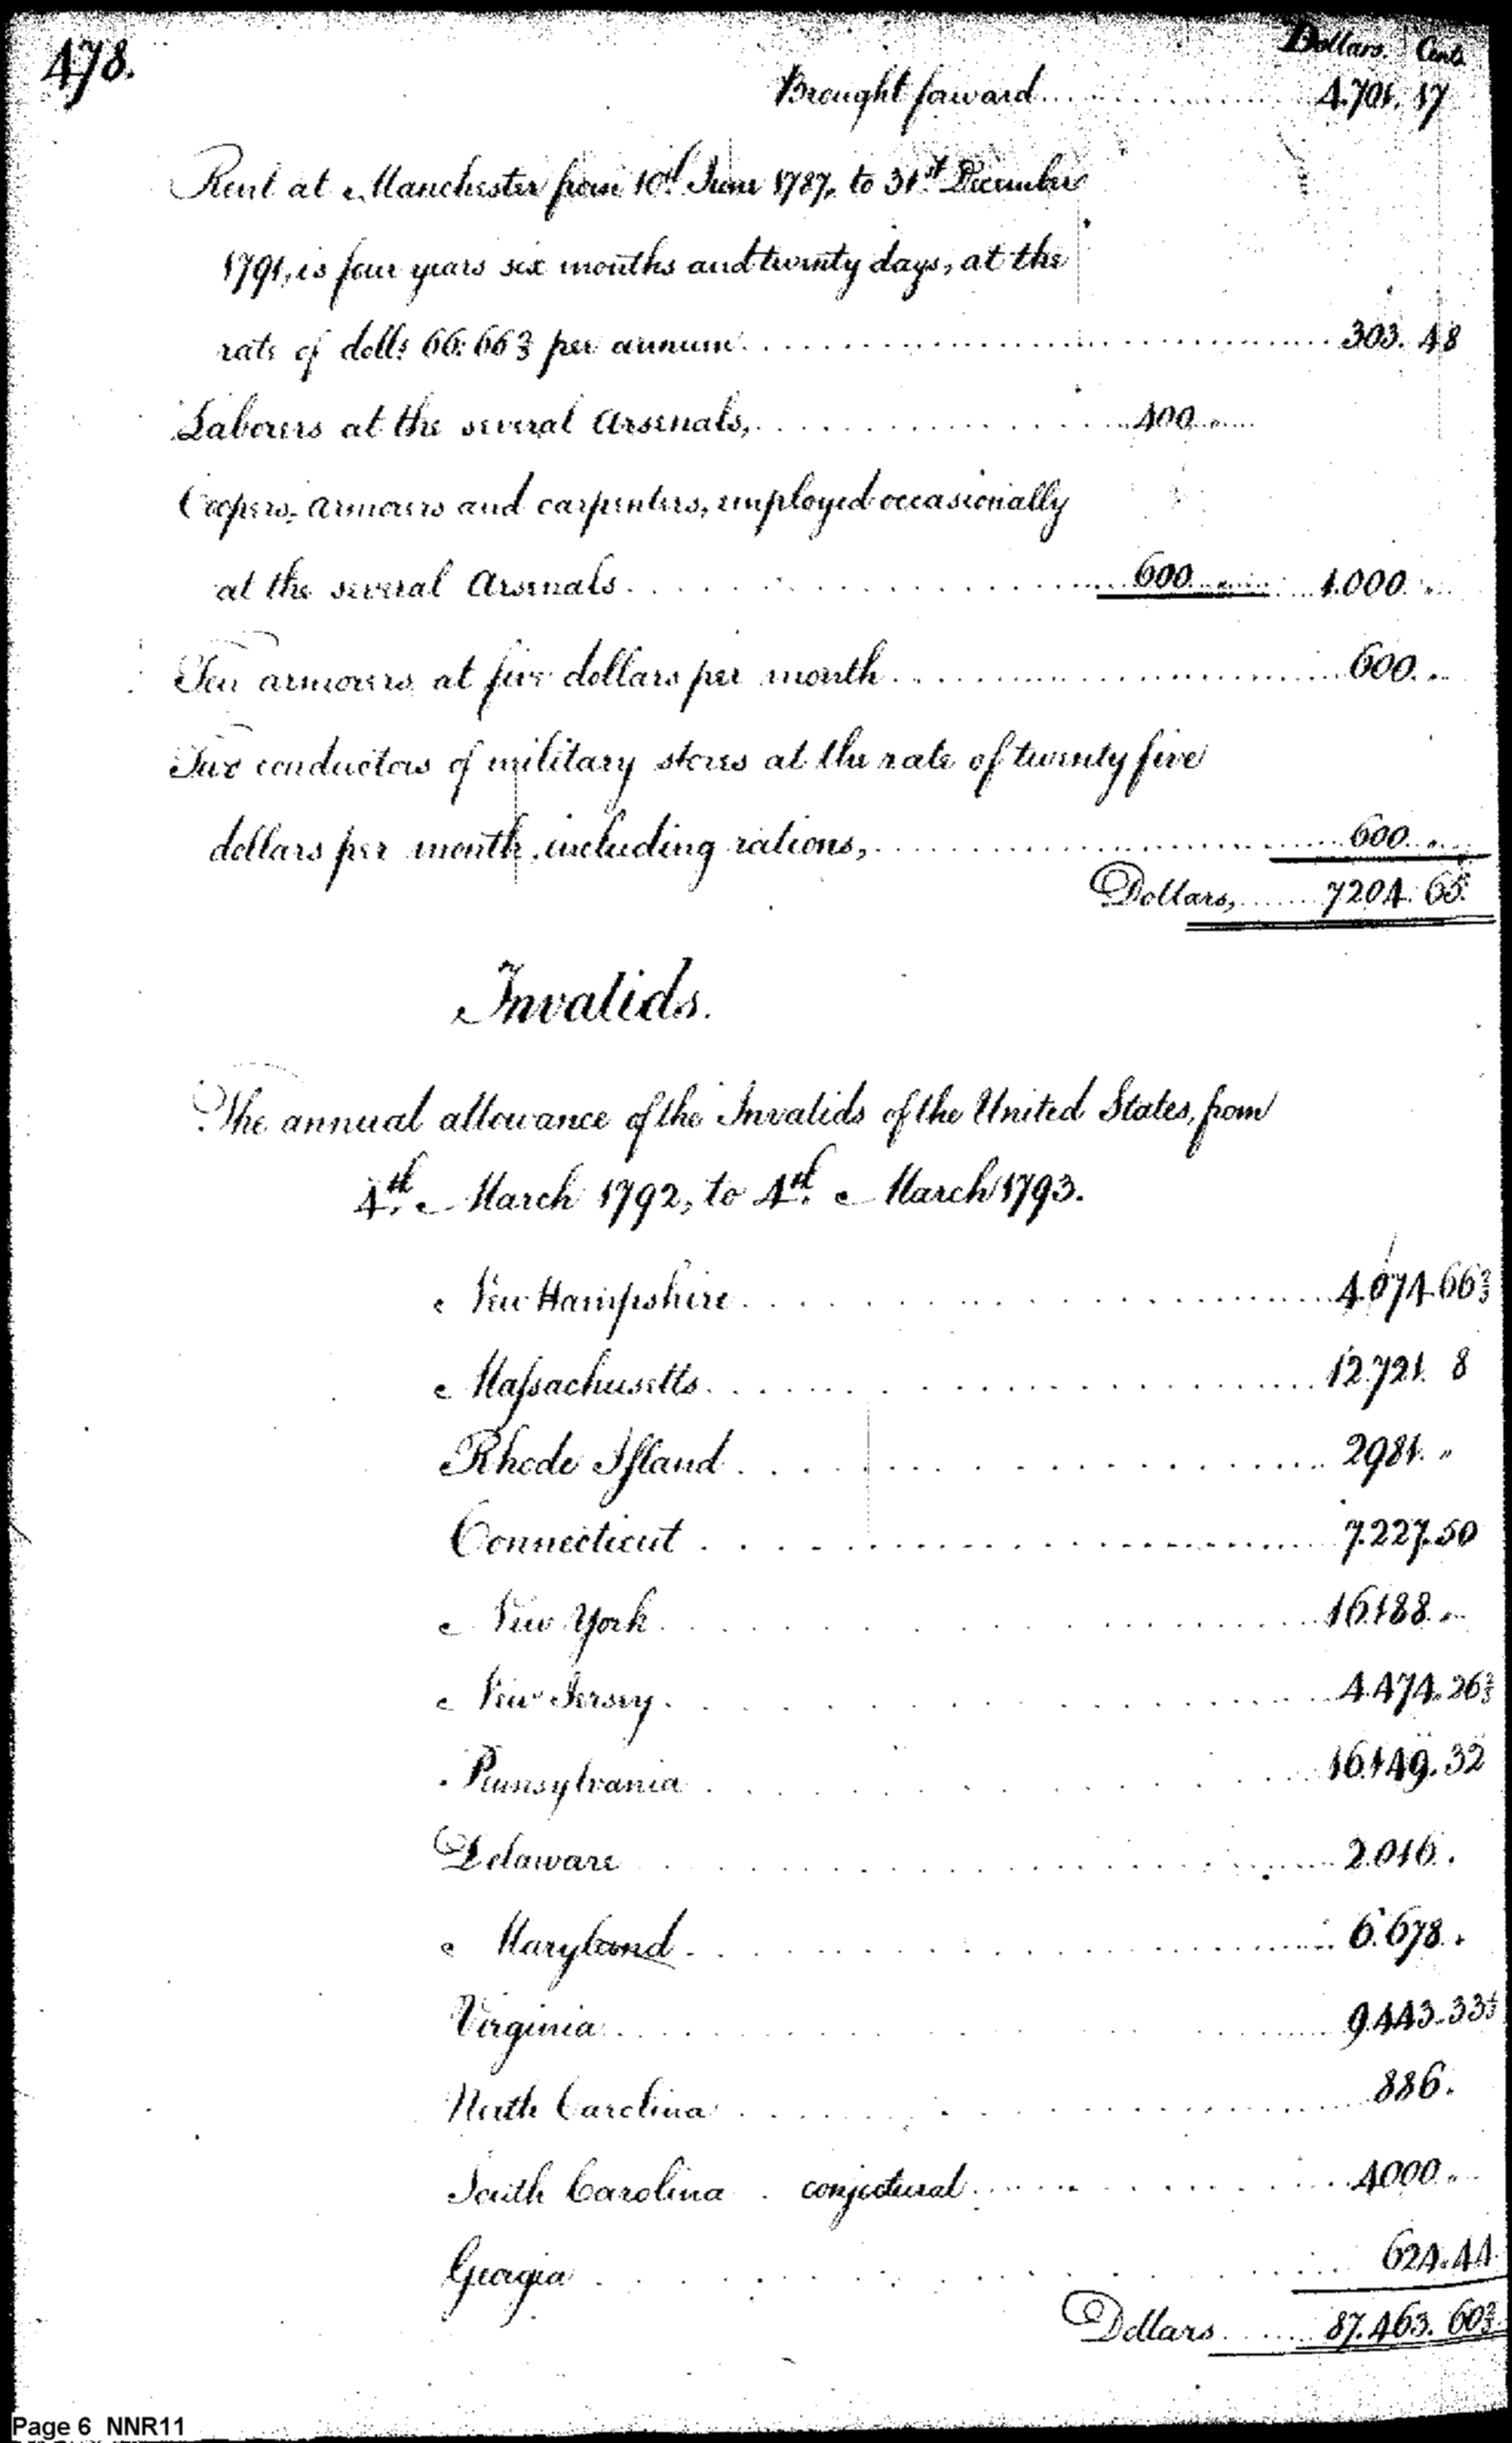 478.
Dollars. Cents
Brought forward 4.701. 17
Rent at Manchester from 10th. June 1787, to 31st. December
1791, is four years six months and twenty days, at the
rate of dolls. 66.66⅔ per annum 303. 48
Laborers at the several Arsenals, 400 "
Coopers, armourers and carpenters, employed occasionally
at the several Arsenals 600 " 1.000 "
Ten armourers at five dollars per month 600. "
Two conductors of military stores at the rate of twenty five
dollars per month, including rations, 600 "
Dollars, 7204. 65.
Invalids.
The annual allowance of the Invalids of the United States, from
4th. March 1792, to 4th. March 1793.
New Hampshire 4.074.66⅔
Massachusetts 12.721. 8
Rhode Island 2981. "
Connecticut 7.227.50
New York 16.188. "
New Jersey 4.474.26⅔
Pennsylvania 16.149.32
Delaware 2.016.
Maryland 6.678.
Virginia 9.443.33⅓
North Carolina 886.
South Carolina . conjectural 4000. "
Georgia 624.44
Dollars 87.463.60⅔
Page 6 NNR11